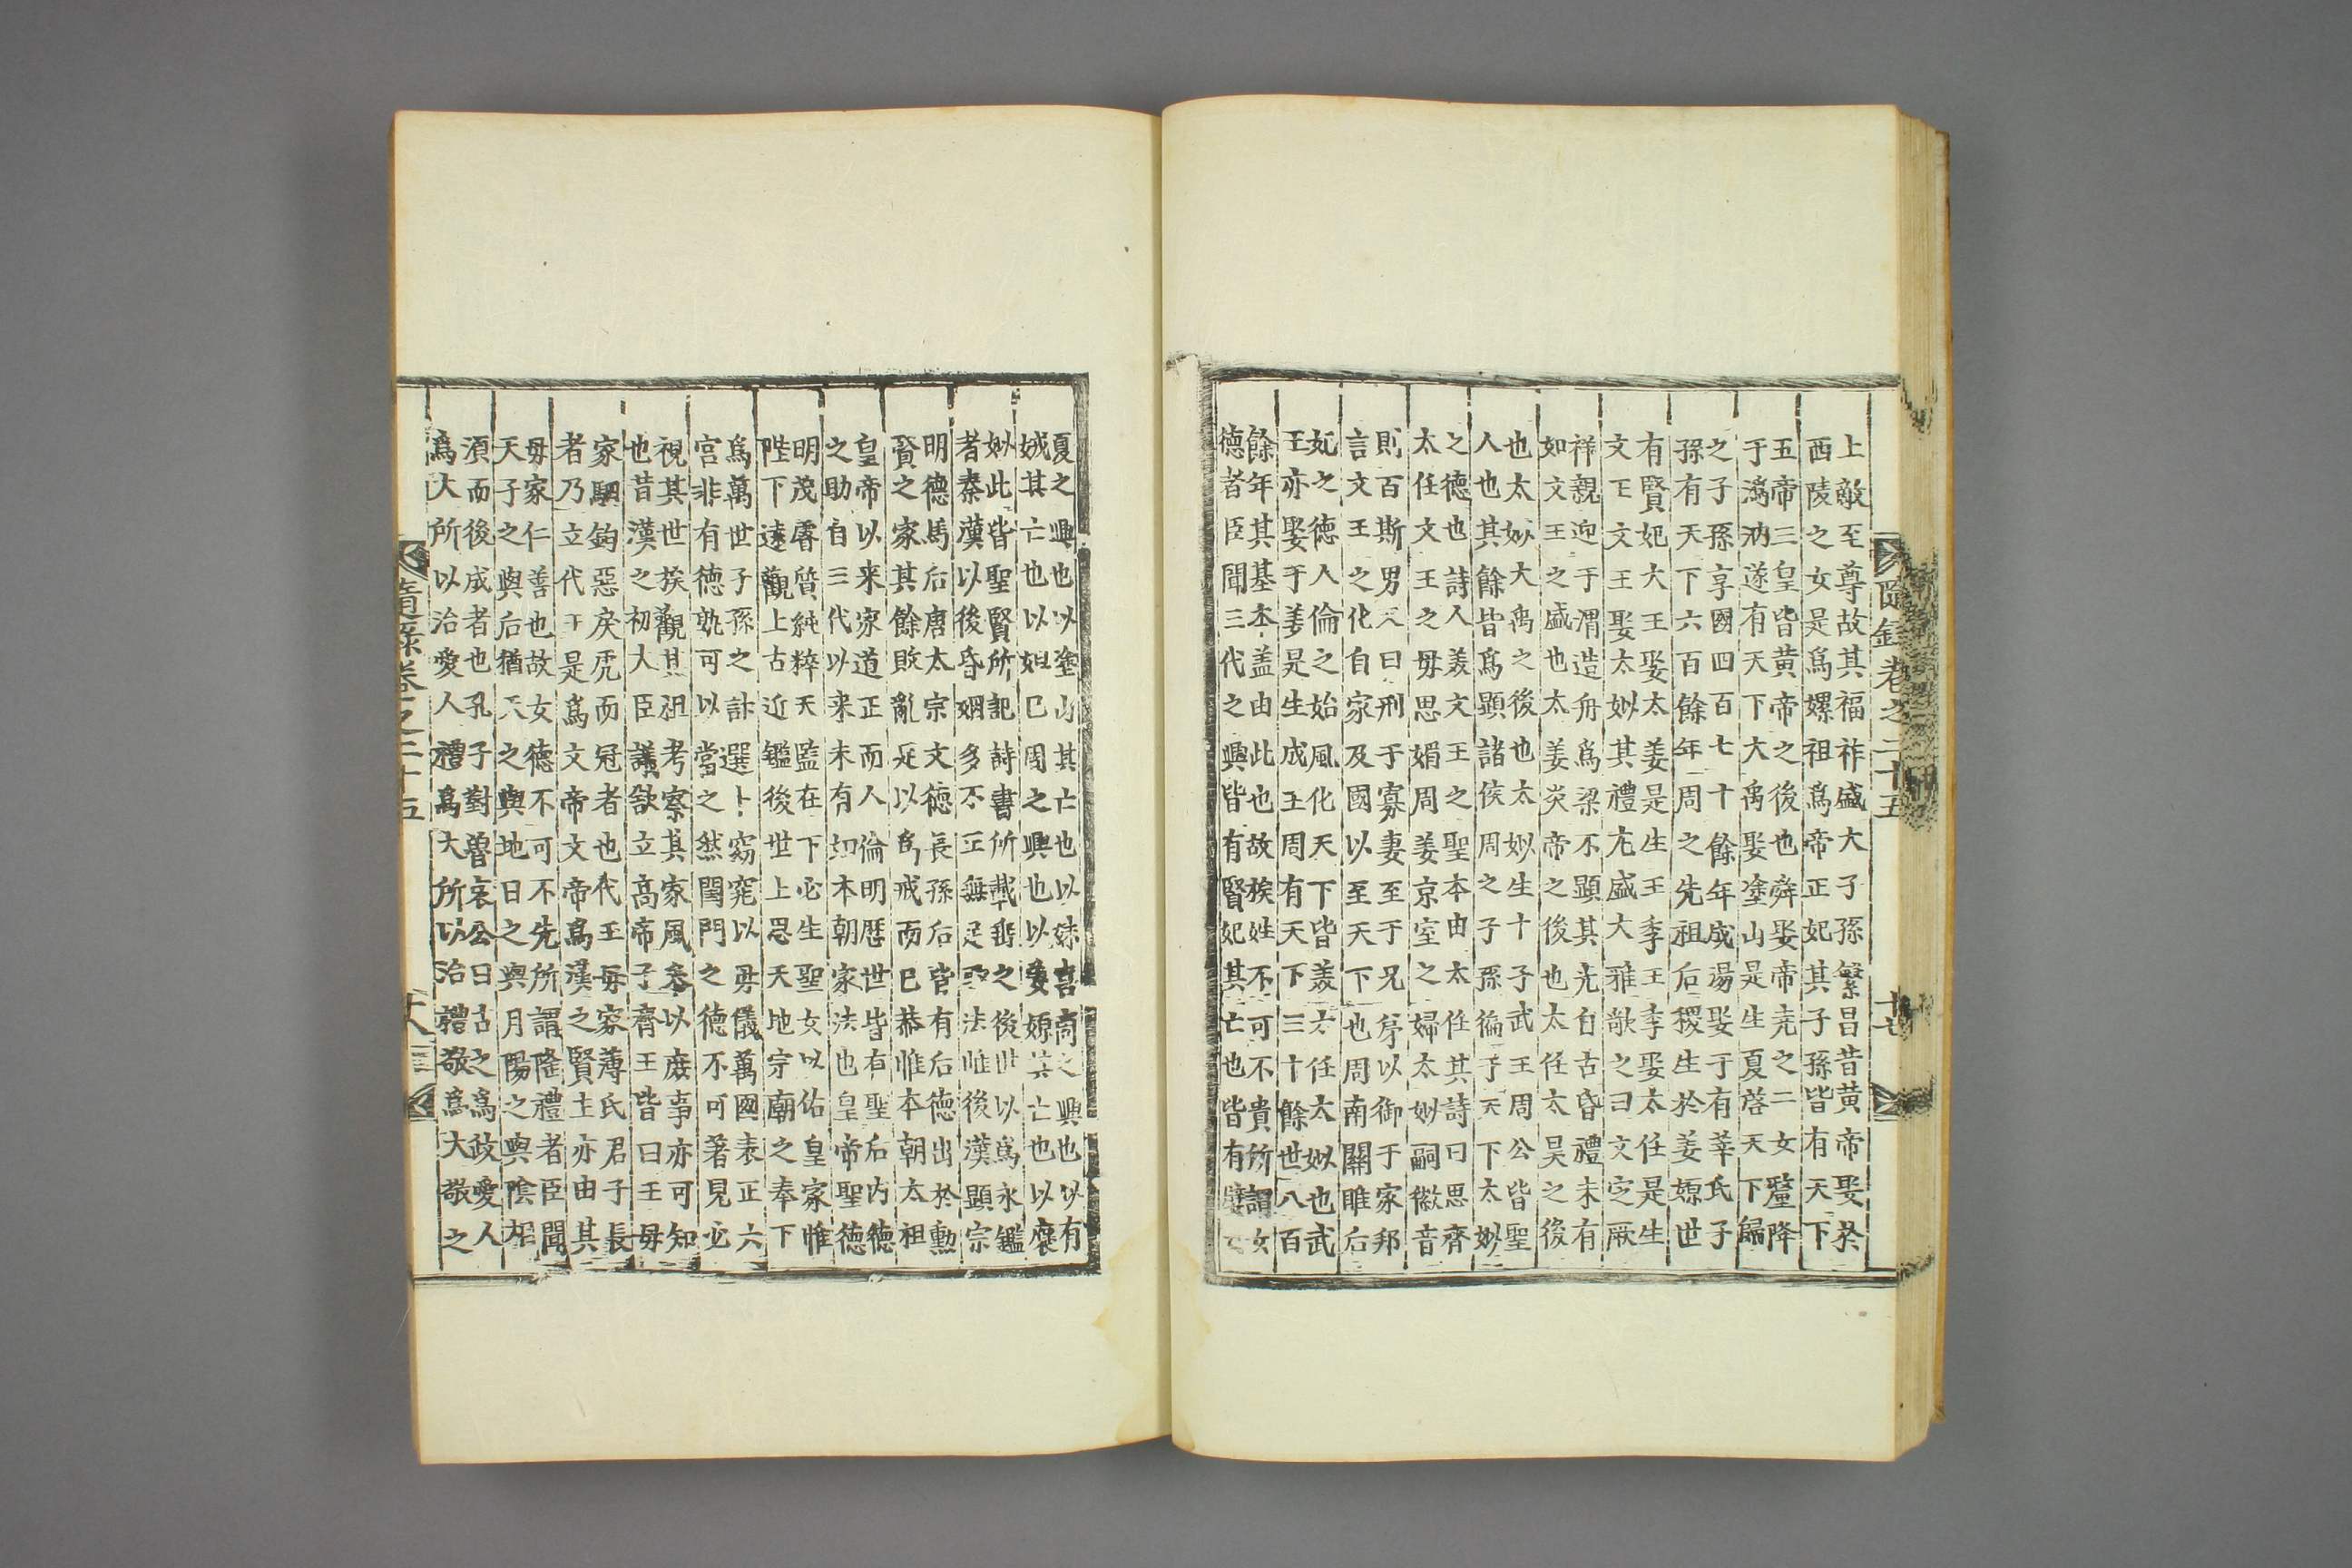 隨錄卷之二十五
上敵至尊故其福祚盛大子孫繁昌昔黃帝娶
西陵之女是爲嫘祖爲帝正妃其子孫皆有天下
五帝三皇皆黃帝之後也舜娶帝堯之二女釐降
于潙汭遂有天下大禹娶塗山是生夏啓天下歸
之子孫享國四百七十餘年成湯娶于有莘氏子
孫有天下六百餘年周之先祖后稷生於姜嫄世
有賢妃大王娶太姜是生王季王季娶太任是生
文王文王娶太姒其禮尤盛大雅歌之曰文定厥
祥親迎于渭造舟爲梁不顯其光自古昏禮未有
如文王之盛也太姜炎帝之後也太任太昊之後
也太姒大禹之後也太姒生十子武王周公皆聖
人也其餘皆爲顯諸侯周之子孫徧于天下太姒
之德也詩人羙文王之聖本由太任其詩曰思齊
太任文王之毋思媚周姜京室之婦太姒嗣徽音
則百斯男又曰刑于寡妻至于兄弟以御于家邦
言文王之化自家及國以至天下也周南關雎后
妃之德人倫之始風化天下皆羙太任太姒也武
王亦娶于姜是生成王周有天下三十餘世八百
餘年其基本盖由此也故族姓不可不貴所謂女
德者臣聞三代之興皆有賢妃其亡也皆有嬖
夏之興也以塗山其亡也以妺喜商之興也以有
娀其亡也以妲己周之興也以姜嫄其亡也以襃
姒此皆聖賢所記詩書所載垂之後世以爲永鑑
者秦漢以後昏姻多不正無足法惟後漢顯宗
明德馬后唐太宗文德長孫后皆有后德出於勳
賢之家其餘敗亂足以爲戒而已恭惟本朝太祖
皇帝以来家道正而人倫明歷世皆有聖后內德
之助自三代以来未有如本朝家法也皇帝聖德
明茂睿質純粹天監在下必生聖女以佑皇家惟
陛下遠觀上古近鑑後世上思天地宗廟之奉下
爲萬世子孫之計選卜窈窕以毋儀萬國表正六
宮非有德孰可以當之然閨門之德不可著見必
視其世族觀其祖考察其家風叅以庶事亦可知
也昔漢之初大臣議欲立高帝子齊王皆曰王毋
家駟鈞惡戾虎而冠者也代王毋家薄氏君子長
者乃立代王是爲文帝文帝爲漢之賢主亦由其
毋家仁善也故女德不可不先所謂隆禮者臣聞
天子之與后猶天之與地日之與月陽之與隂相
須而後成者也孔子對魯哀公曰古之爲政愛人
爲大所以治愛人禮爲大所以治禮敬爲大敬之
隨錄卷之二十五
十八